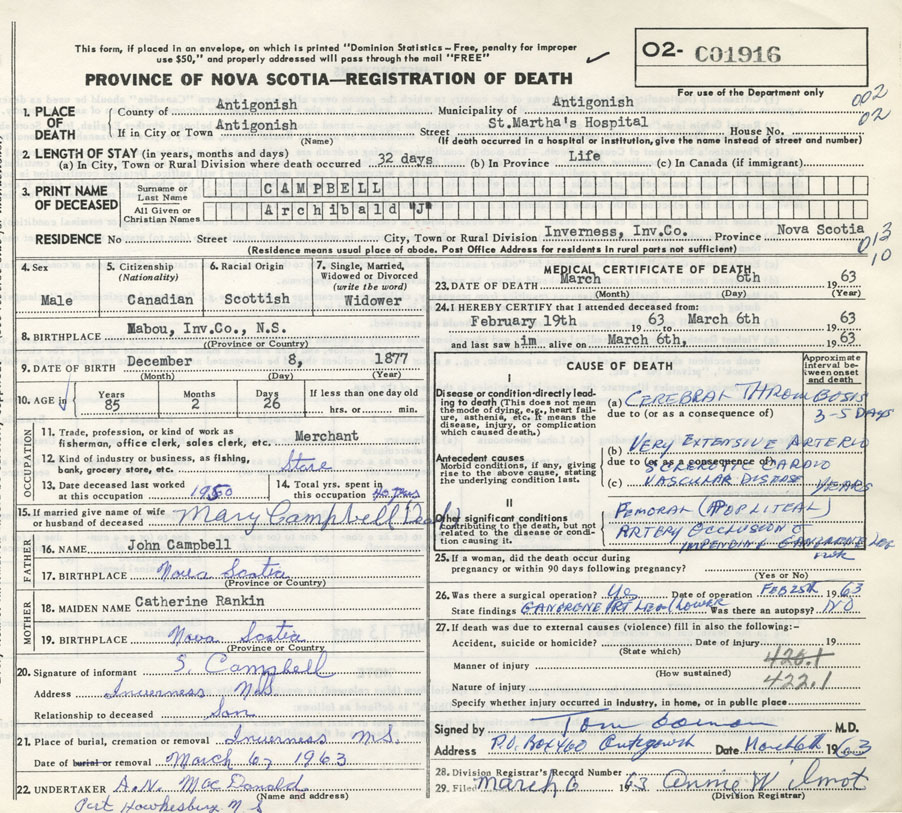 This form, if placed in an envelope, on which is printed "Dominion Statistics – Free, penalty for improper
use $50," and properly addressed will pass through the mail "FREE"
O2- C01916
PROVINCE OF NOVA SCOTIA—REGISTRATION OF DEATH
For use of the Department only
002
02
1. PLACE OF DEATH
County of Antigonish Municipality of Antigonish
If in City or Town Antigonish Street St.Martha's Hospital House No.
(Name) (If death occurred in a hospital or institution, give the name instead of street and number)
2. LENGTH OF STAY (in years, months and days)
(a) In City, Town or Rural Division where death occurred 32 days (b) In Province Life (c) In Canada (if immigrant)
3. PRINT NAME OF DECEASED
Surname or Last Name CAMPBELL
All Given or Christian Names Archibald "J"
RESIDENCE No Street City, Town or Rural Division Inverness, Inv.Co. Province Nova Scotia
(Residence means usual place of abode. Post Office Address for residents in rural parts not sufficient)
013
10
4. Sex
Male
5. Citizenship (Nationality)
Canadian
6. Racial Origin
Scottish
7. Single, Married, Widowed or Divorced (write the word)
Widower
8. BIRTHPLACE Mabou, Inv.Co., N.S.
(Province or Country)
9. DATE OF BIRTH December 8, 1877
(Month) (Day) (Year)
10. AGE in Years 85 Months 2 Days 26 If less than one day old hrs. or min.
OCCUPATION
11. Trade, profession, or kind of work as
fisherman, office clerk, sales clerk, etc. Merchant
12. Kind of industry or business, as fishing,
bank, grocery store, etc. Store
13. Date deceased last worked
at this occupation 1950
14. Total yrs. spent in
this occupation 40 yrs
15. If married give name of wife
or husband of deceased Mary Campbell Dead
FATHER
16. NAME John Campbell
17. BIRTHPLACE Nova Scotia
(Province or Country)
MOTHER
18. MAIDEN NAME Catherine Rankin
19. BIRTHPLACE Nova Scotia
(Province or Country)
20. Signature of informant S. Campbell
Address Inverness N.S
Relationship to deceased Son
21. Place of burial, cremation or removal Inverness
Date of burial or removal March 6, 1963
22. UNDERTAKER A.N. MacDonald
(Name and address)
Port Hawkesbury N S
MEDICAL CERTIFICATE OF DEATH
23. DATE OF DEATH March 6th 1963
(Month) (Day) (Year)
24. I HEREBY CERTIFY that I attended deceased from:
February 19th 1963 to March 6th 1963
and last saw him alive on March 6th, 1963
CAUSE OF DEATH
Approximate interval between onset and death
I
Disease or condition directly leading to death (This does not mean
the mode of dying, e.g., heart failure, asthenia, etc. It means the
disease, injury, or complication
which caused death.)
(a) CEREBRAL THROMBOSIS
due to (or as a consequence of) 3-5 DAYS
Antecedent causes
Morbid conditions, if any, giving
rise to the above cause, stating
the underlying condition last.
(b) VERY EXTENSIVE ARTERIO
due to (or as a consequence of) SCLEROTIC CARDIO
(c) VASCULAR DISEASE YEARS
II
Other significant conditions
contributing to the death, but not
related to the disease or condition causing it.
FEMORAL (POPLITEAL)
ARTERY OCCLUSION &
IMPENDING GANGRENE LEG
25. If a woman, did the death occur during
pregnancy or within 90 days following pregnancy?
(Yes or No)
26. Was there a surgical operation? Yes Date of operation FEB 25th 1963
State findings GANGRENE RT LEG (LOWER Was there an autopsy? NO
27. If death was due to external causes (violence) fill in also the following:-
Accident, suicide or homicide? Date of injury 19
(State which)
Manner of injury 420.1
(How sustained)
Nature of injury 422.1
Specify whether injury occurred in industry, in home, or in public place
Signed by M.D.
Address P.O. Box 460 Antigonish Date March 6th 1963
28. Division Registrar's Record Number
29. Filed March 6 1963 Annie Wilmot
(Division Registrar)